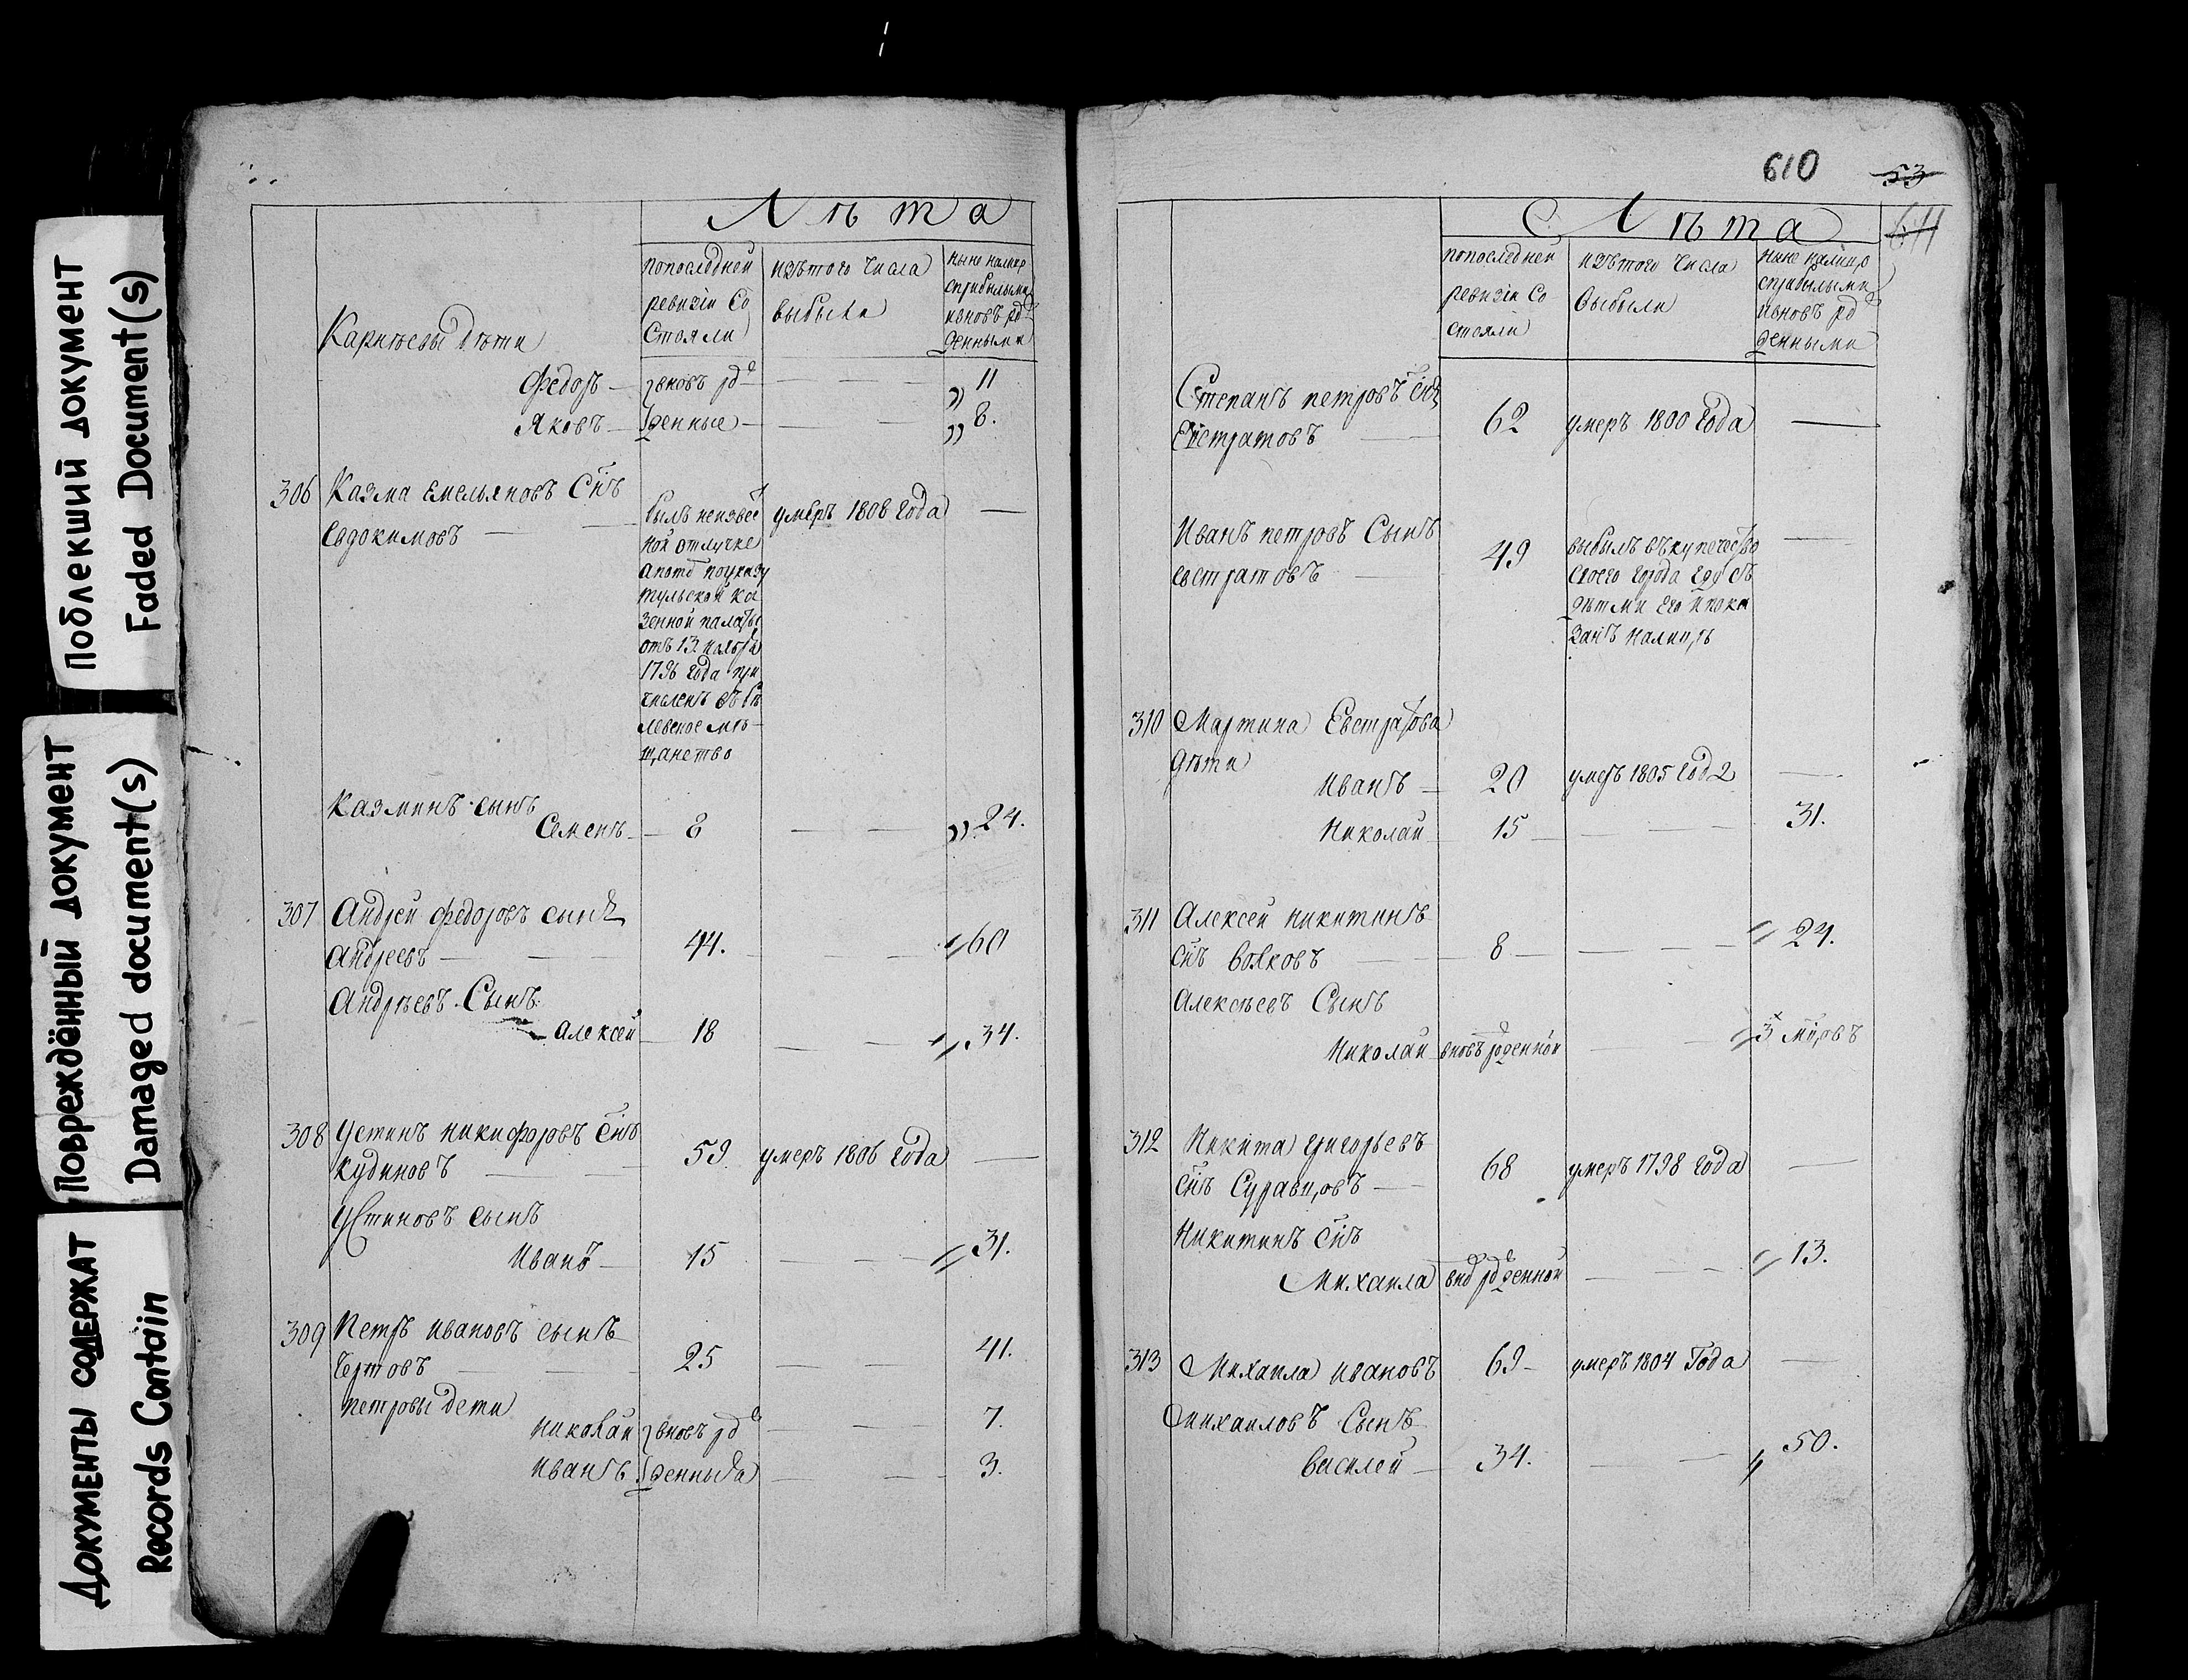 Поблекший документ
Faded Document(s)
Повреждённый документ
Damaged document(s)
Документы содержат
Records Contain
Лѣта
попоследней
ревизіи Со
стояли
изътого числа
выбыли
ныне налицо
сприбылыми
ивновъ рож
денными
Карнѣевы дѣти
Федоръ — вновь рож — — 11
Яковъ — денные — — 8.
306 Казма Емельяновъ Снъ
Евдокимовъ —
былъ неизвес
ной отлучке
а потомъ поуказу
тульской ка
зенной палаты
отъ 13. ноября
1796 года при
численъ въ бѣ
левское мѣ-
щанство
умеръ 1808 года —
Казминъ сынъ
Семенъ — 8 — — 24.
307 Андрей Федоровъ сынъ
Андреевъ — — 44. — — 60
Андрѣевъ Сынъ
Алексей — 18 — — 34.
308 Устинъ никифоровъ Снъ
кудиновъ — — 59. умеръ 1806 года —
Устиновъ сынъ
Иванъ — 15 — — 31.
309 Петръ ивановъ сынъ
Чертовъ — — 25 — — 41.
петровы дети
николай вновь рож — — 7.
иванъ денныя — — 3.
610 53
611
Лѣта
попоследней
ревизіи Со
стояли
изътого числа
выбыли
ныне налицо
сприбылыми
ивновъ рож
денными
Степанъ петровъ снъ
Евстратовъ — 62 умеръ 1800 года —
Иванъ петровъ Сынъ
евстратовъ — 49
выбылъ въкупечество
своего города съ
дѣтми его и пока
занъ налицѣ
—
310 Мартина Евстратова
дѣти
Иванъ — 20 умеръ 1805 года —
Николай — 15 — — — 31.
311 Алексей никитинъ
снъ волковъ — 8 — — — 24.
Алексѣевъ Сынъ
Николай вновь рожденной — — 3 мцовъ
312 Никита григорьевъ
снъ Суравцовъ — 68 умеръ 1798 года —
Никитинъ Снъ
Михаила рожденной — — 13.
313 Михаила ивановъ 69 — умеръ 1804 Года —
михаиловъ Сынъ
Василей — 34. — — 50.